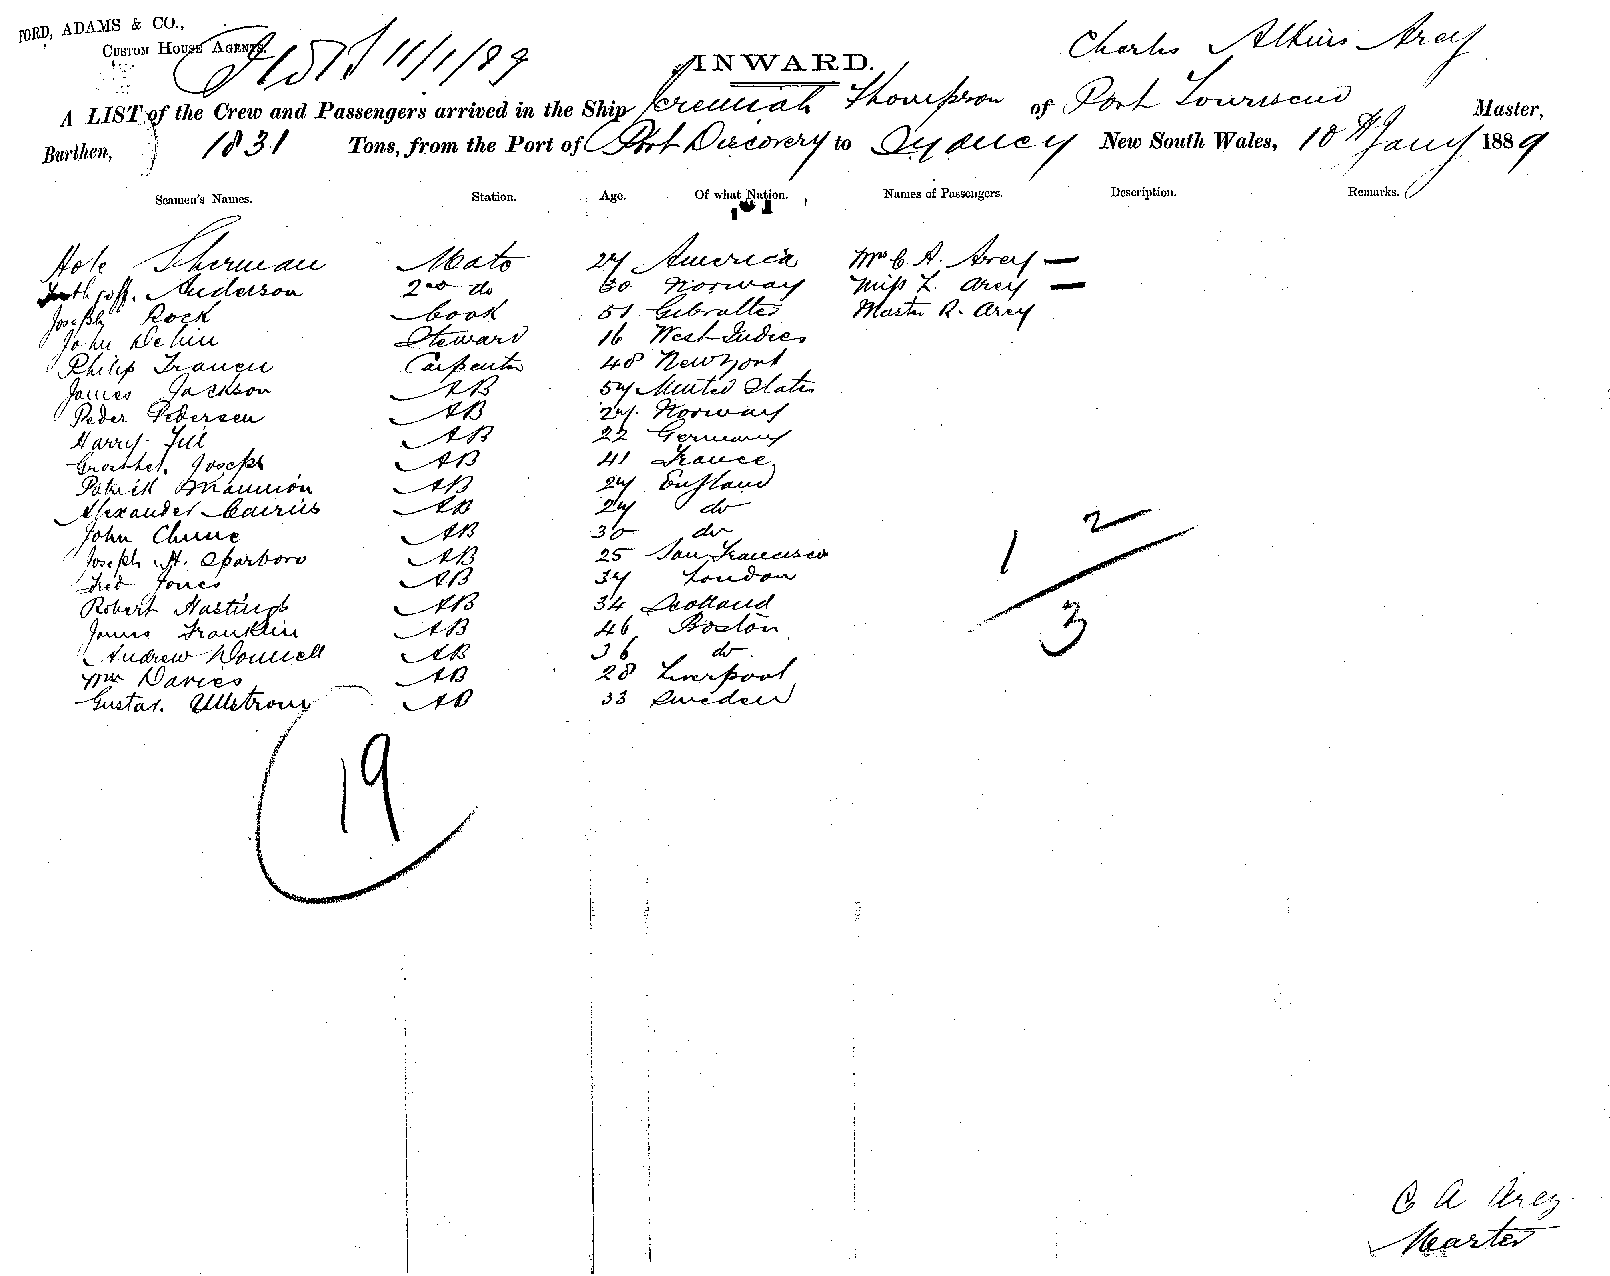 FORD, ADAMS & CO.,
CUSTOM HOUSE AGENTS.
11/1/89
INWARD.
Charles Atkins Arey
A LIST of the Crew and Passengers arrived in the Ship Jeremiah Thompson of Port Townsend Master,
Burthen, 1831 Tons, from the Port of Port Discovery to Sydney New South Wales, 10th Jany 1889
Seamen's Names. Station. Age. Of what Nation. Names of Passengers. Description. Remarks.
Sherman Mate 27 America Mrs C. A. Arey —
Anderson 2nd do 30 Norway Miss L. Arey —
Joseph Rock Cook 51 Gibralter Master R. Arey
John Steward 16 West Indies
Philip Carpenter 48 New York
James Jackson AB 57 United States
Peder Pedersen AB 27 Norway
Harry AB 22 Germany
Joseph AB 41 France
Patrick Mannion AB 27 England
Alexander Cairns AB 27 do
John AB 30 do
Joseph H. Sparboro AB 25 San Francisco
Fred Jones AB 37 London
Robert Hastings AB 34 Scotland
James Franklin AB 46 Boston
Andrew Donnell AB 36 do
Wm Davies AB 28 Liverpool
Gustav. Ullstrom AB 33 Sweden
1 2
3
19
C A Arey
Master